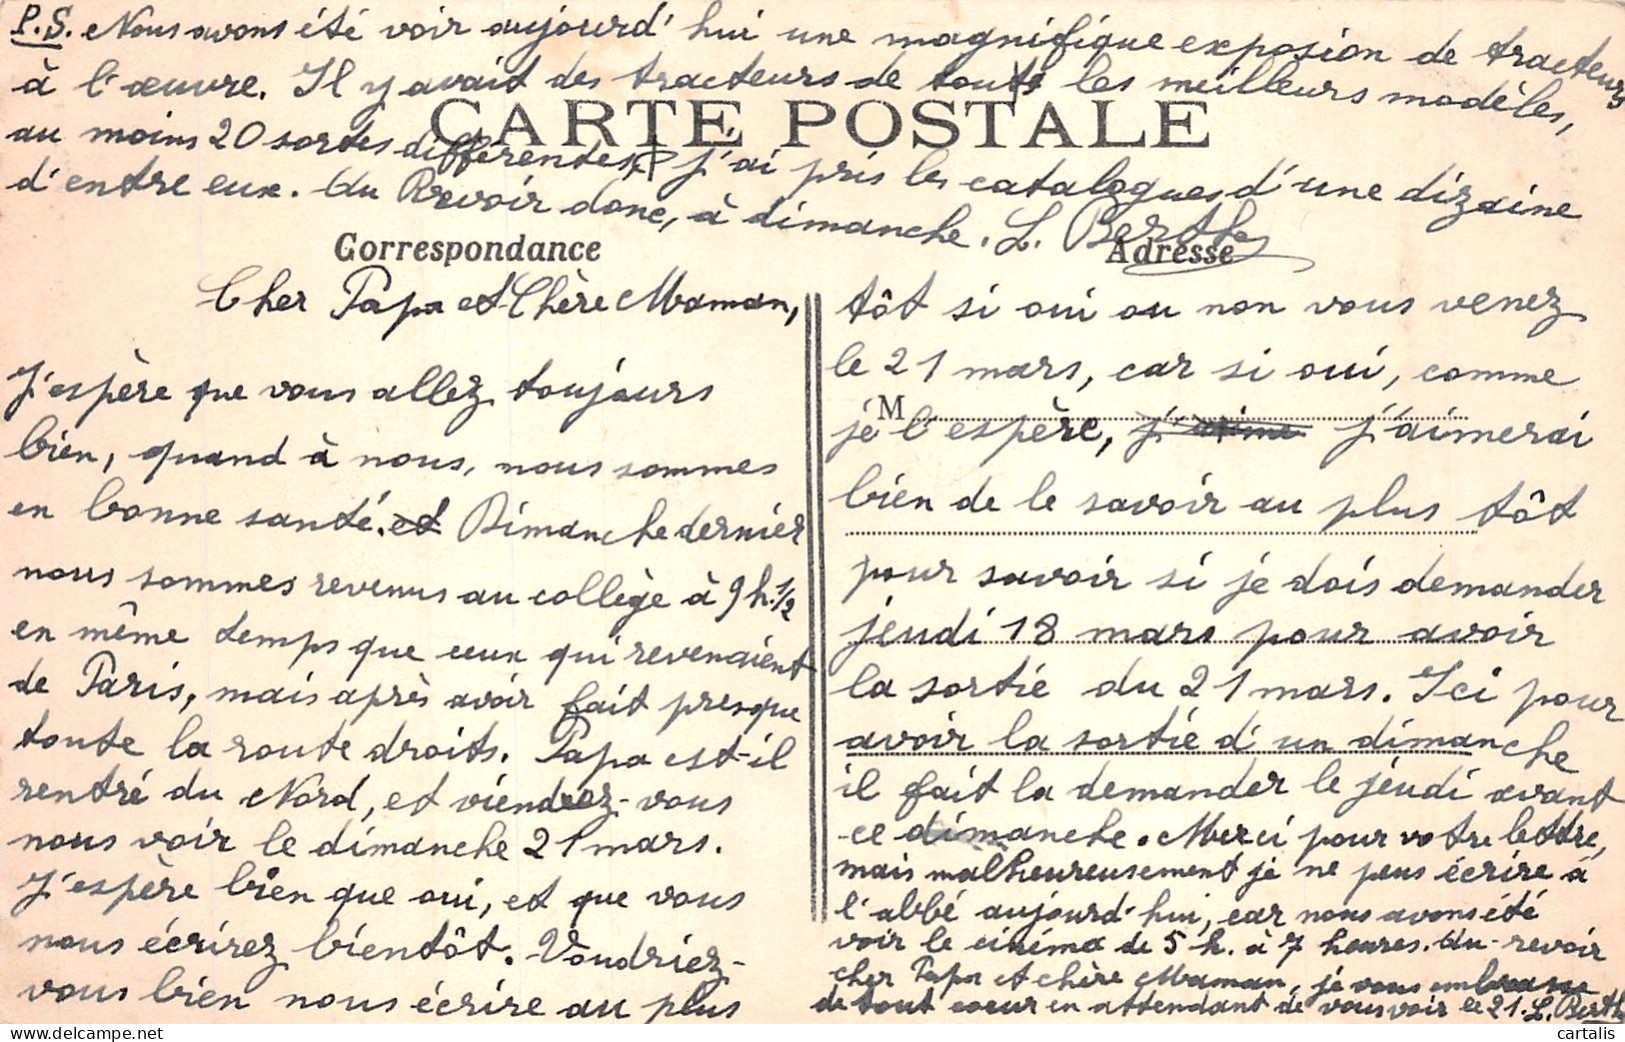 P.S. Nous avons été voir aujourd'hui une magnifique exposion de tracteurs
à l'œuvre. Il y avait des tracteurs de tous les meilleurs modèles,
CARTE POSTALE
au moins 20 sortes différentes, j'ai pris les catalogues d'une dizaine
d'entre eux. Au Revoir donc, à dimanche. L. Berth
Correspondance
Adresse
Cher Papa et Chère Maman,
J'espère que vous allez toujours
bien, quand à nous, nous sommes
en bonne santé. et Dimanche dernier
nous sommes revenus au collège à 9h.1/2
en même temps que ceux qui revenaient
de Paris, mais après avoir fait presque
toute la route droits. Papa est-il
rentré du Nord, et viendrez-vous
nous voir le dimanche 21 mars.
J'espère bien que oui, et que vous
nous écrirez bientôt. Voudriez-
vous bien nous écrire au plus
tôt si oui ou non vous venez
le 21 mars, car si oui, comme
M
je l'espère, j'aime j'aimerai
bien de le savoir au plus tôt
pour savoir si je dois demander
jeudi 18 mars pour avoir
la sortie du 21 mars. Ici pour
avoir la sortie d'un dimanche
il fait la demander le jeudi avant
ce dimanche. Merci pour votre lettre,
mais malheureusement je ne peus écrire à
l'abbé aujourd'hui, car nous avons été
voir le cinéma de 5 h. à 7 heures. Au-revoir
cher Papa et chère Maman, je vous embrasse
de tout coeur en attendant de vous voir le 21. L. Berth
www.delcampe.net
cartalis